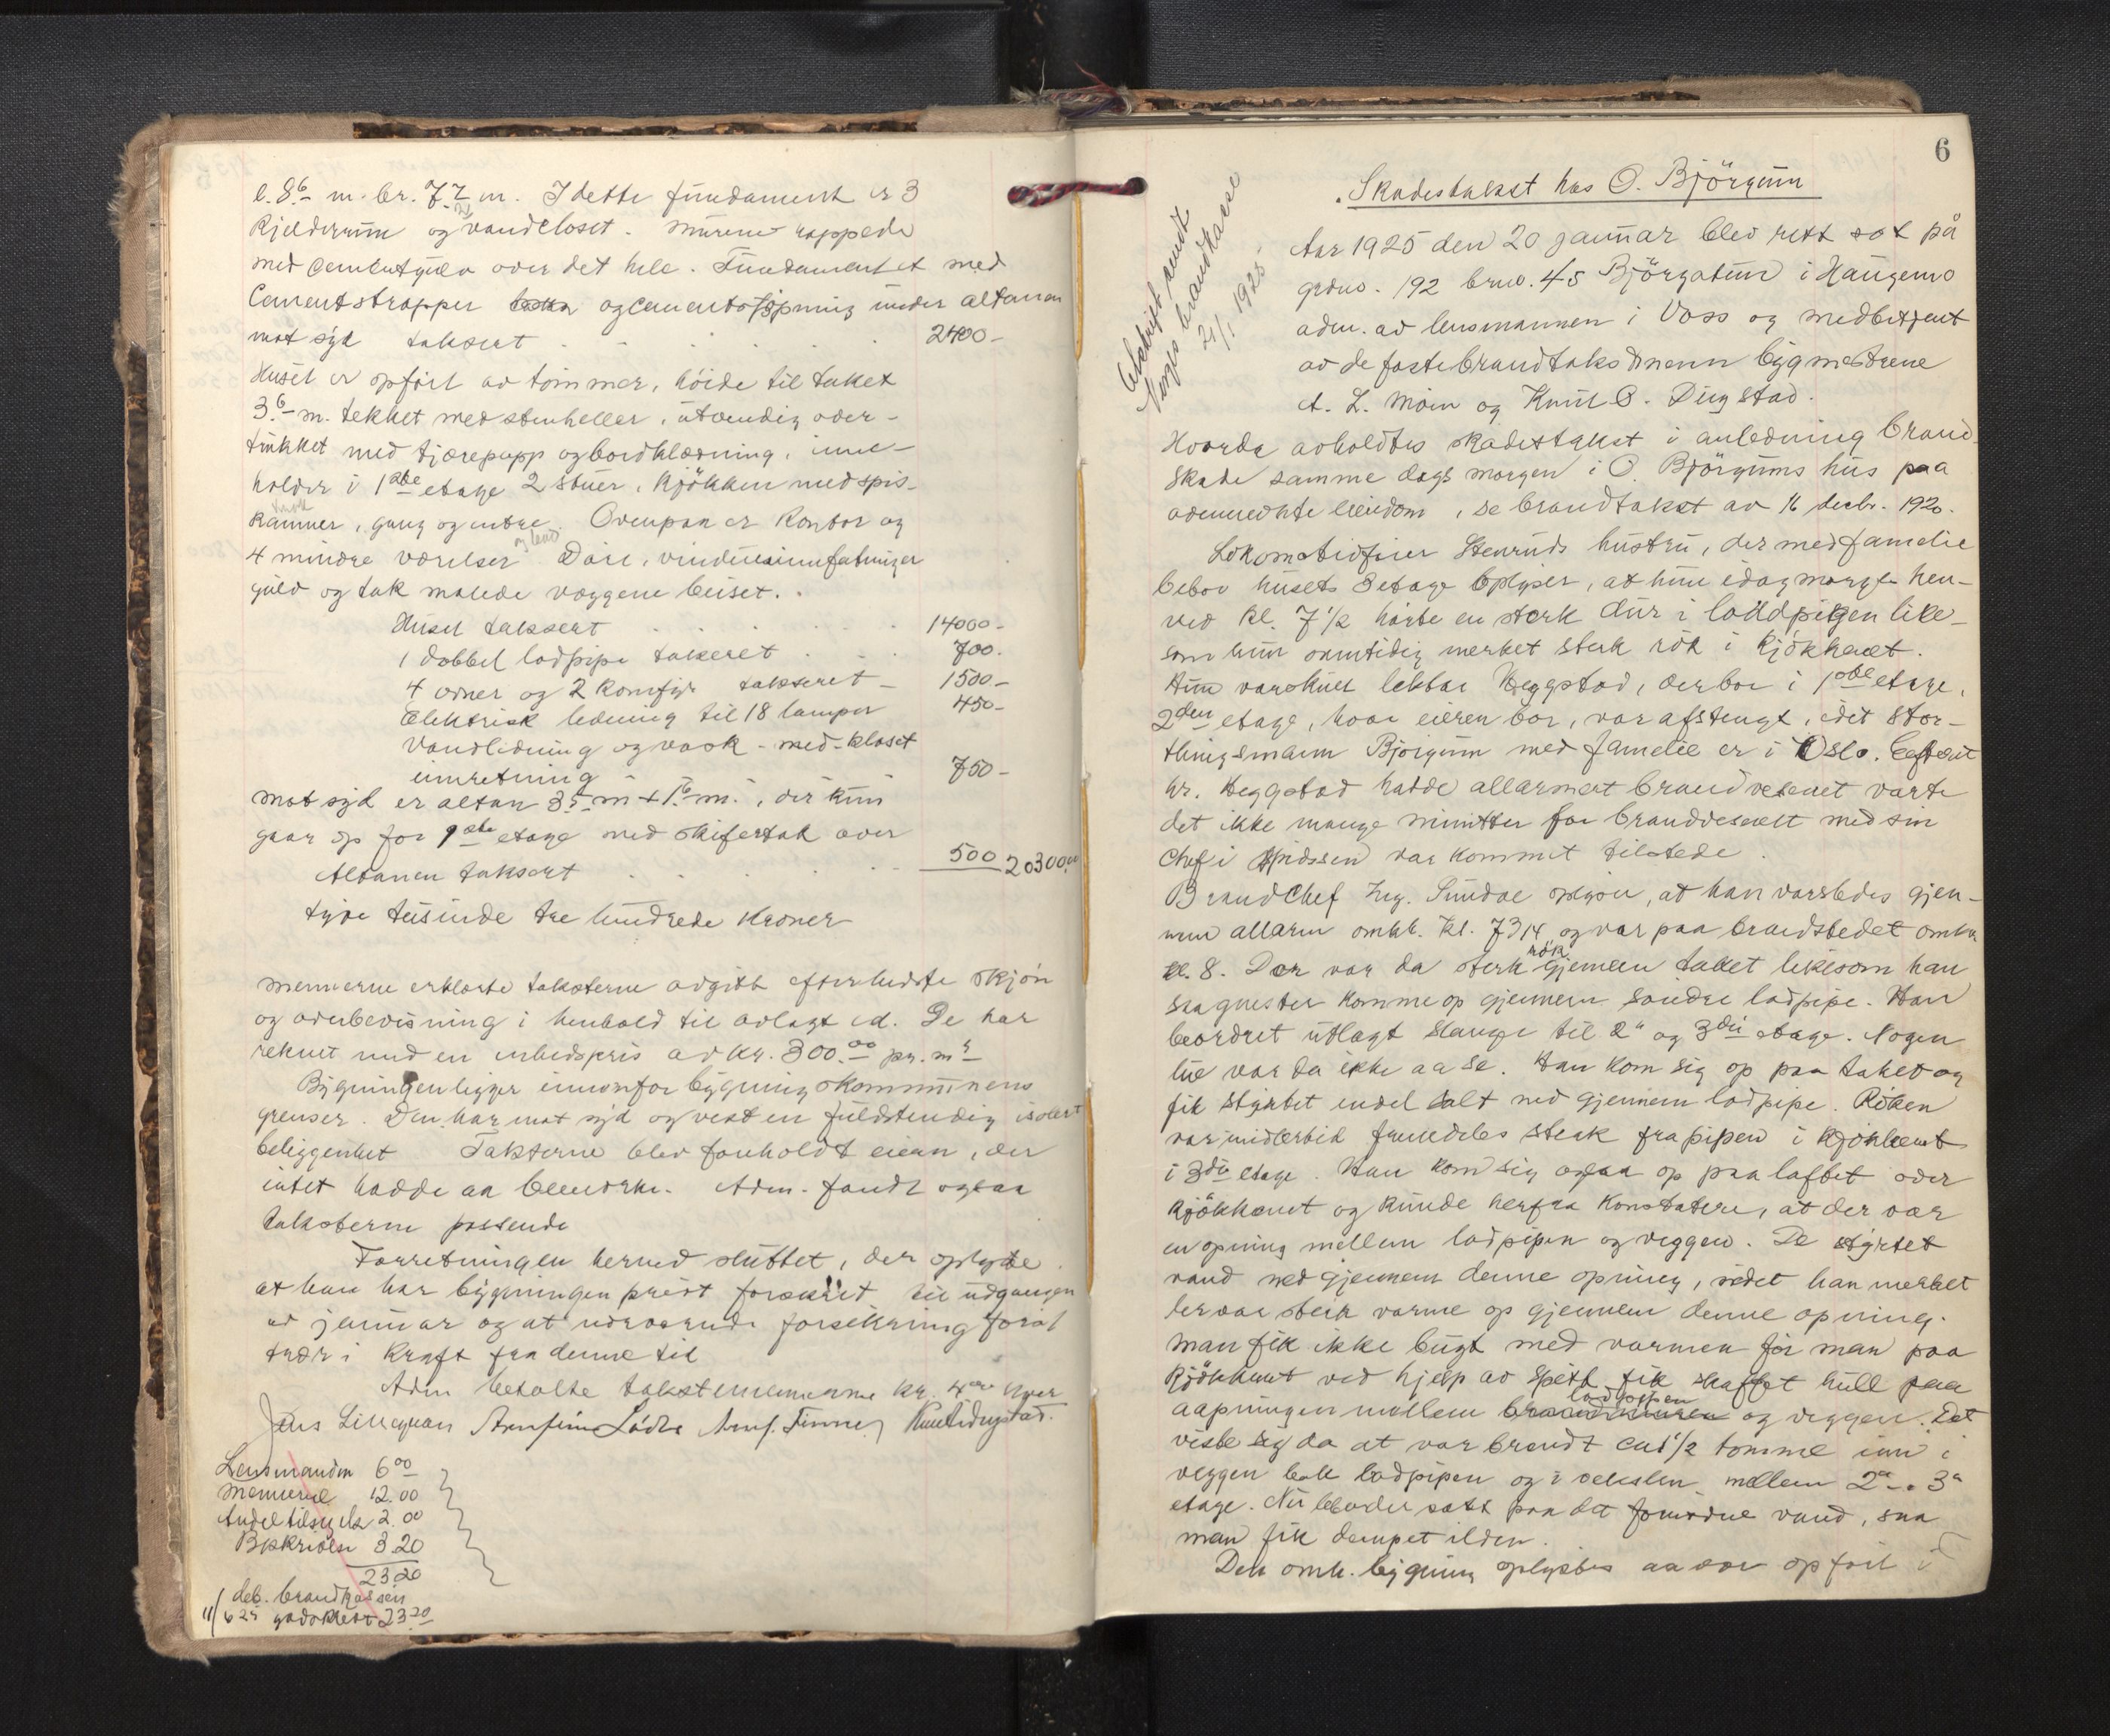 l. 8.6 m. br. 7.2 m. I dette fundament er 3
Kjelderrum og vandcloset. Murene rappede
med cementgulv over det hele. Fundamentet med
Cementstrapper og cementstøpning under altanen
mot syd taksert 2400-
Huset er opført av tømmer, høide til taket
3.6 m. tekket med stenheller, utvendig over-
trukket med tjærepapp og bordklædning, inne-
holder i 1ste etage 2 stuer, kjøkken med spis-
kammer, gang og entre. Ovenpaa er Kontor og
4 mindre værelser Døre, vinduesinnfatninger
gulv og tak malede væggene beiset.
Huset taksert 14000-
1 dobbel lodpipe takseret 700.
4 ovner og 2 komfyr takseret 1500-
Elektrisk ledning til 18 lamper 450-
Vandledning og vask - med - kloset
innretning 750-
mot syd er altan 3.5 m + 1.6 m., der kun
gaar op for 1ste etage med skifertak over
Altanen taksert 500 20300.00
tyve tusinde tre hundrede Kroner
mennerne erklærte taksterne avgitt efter bedste skjøn
og overbevisning i henhold til avlagt ed. De har
reknet med en enhedspris av kr. 300.00 pr. m2
Bygningen ligger innenfor bygningskommunens
grenser. Den har mot syd og vest en fuldstendig isolert
beliggenhet Taksterne blev forholdt eieren, der
intet hadde aa bemerke. Adm. fandt ogsaa
taksterne passende
Forretningen hermed sluttet, der oplyste
at han har bygningen privt forsikret til udgangen
av januar og at nuværende forsikring først
træder i Kraft fra denne tid
Adm betalte takstmennerne kr. 4.00 hver
Arnfinn Knut Dugstad.
Lensmanden 6.00
Mennerne 12.00
Andel tilsyn 2.00
Beskrivelse 3.20
23.20
deb. brandkassen
11/6 25 godskrevt 23.20
6
Skadestakst hos O. Björgum
Utskrift sendt
Norges brandkasse
21/1 1925
Aar 1925 den 20 januar blev rett sat på
grdno. 192 brno. 45 Björgatun i Haugamo
adm. av lensmannen i Voss og medbetjent
av de faste brandtakstmenn bygmestrene
A. L. Moen og Knut O. Dugstad.
Hvorda avholdtes skadestakst i anledning brand-
skade samme dags morgen i O. Björgums hus paa
ovennevnte eiendom, se brandtakst av 16 decbr. 1920.
Lokomotivfører Stenruds hustru, der med familie
bebor husets 3 etage oplyser, at hun idag morges hen-
ved kl. 7 1/2 hørte en sterk dur i loddpipen like-
som hun samtidig merket sterk røk i kjøkkenet.
Hun varskuet lektor Heggstad, der bor i 1ste etage.
2den etage, hvor eieren bor, var afstengt, idet Stor-
thingsmann Björgum med familie er i Oslo. Eefterat
hr. Heggstad hadde allarmert brandvesenet varte
det ikke mange minutter før brandvesenet med sin
chef i spidssen var kommet tilstede.
Brandchef Ing. Sundve oplyser, at han varsledes gjen-
nem allarm omkr. kl. 7 3/4 og var paa brandstedet omkr.
kl. 8. Der var da sterk røk gjennem taket likesom han
saa gnister komme op gjennem søndre lodpipe. Han
beordret utlagt slange til 2" og 3die etage. Nogen
lue var da ikke aa se. Han kom sig op paa taket og
fik styrtet endel salt ned gjennem lodpipe. Røken
var imidlertid fremdeles sterk fra pipen i kjøkkenet
i 3die etage. Han kom sig ogsaa op paa loftet over
kjøkkenet og kunde herfra konstatere, at der var
en opning mellem lodpipen og veggen. De styrtet
vand ned gjennem denne opning, idet han merket
der var sterk varme op gjennem denne opning.
Man fik ikke bugt med varmen før man paa
kjøkkenet ved hjelp av spett fik skaffet hull paa
aapningen mellem lodpipen og veggen. Det
viste sig da at var brendt ca 1 1/2 tomme inn i
veggen bak lodpipen og i vekslen mellem 2n - 3n
etage. Nu blev der satt paa det fornødne vand, saa
man fik dempet ilden.
Den omh. bygning oplystes aa vær opført i